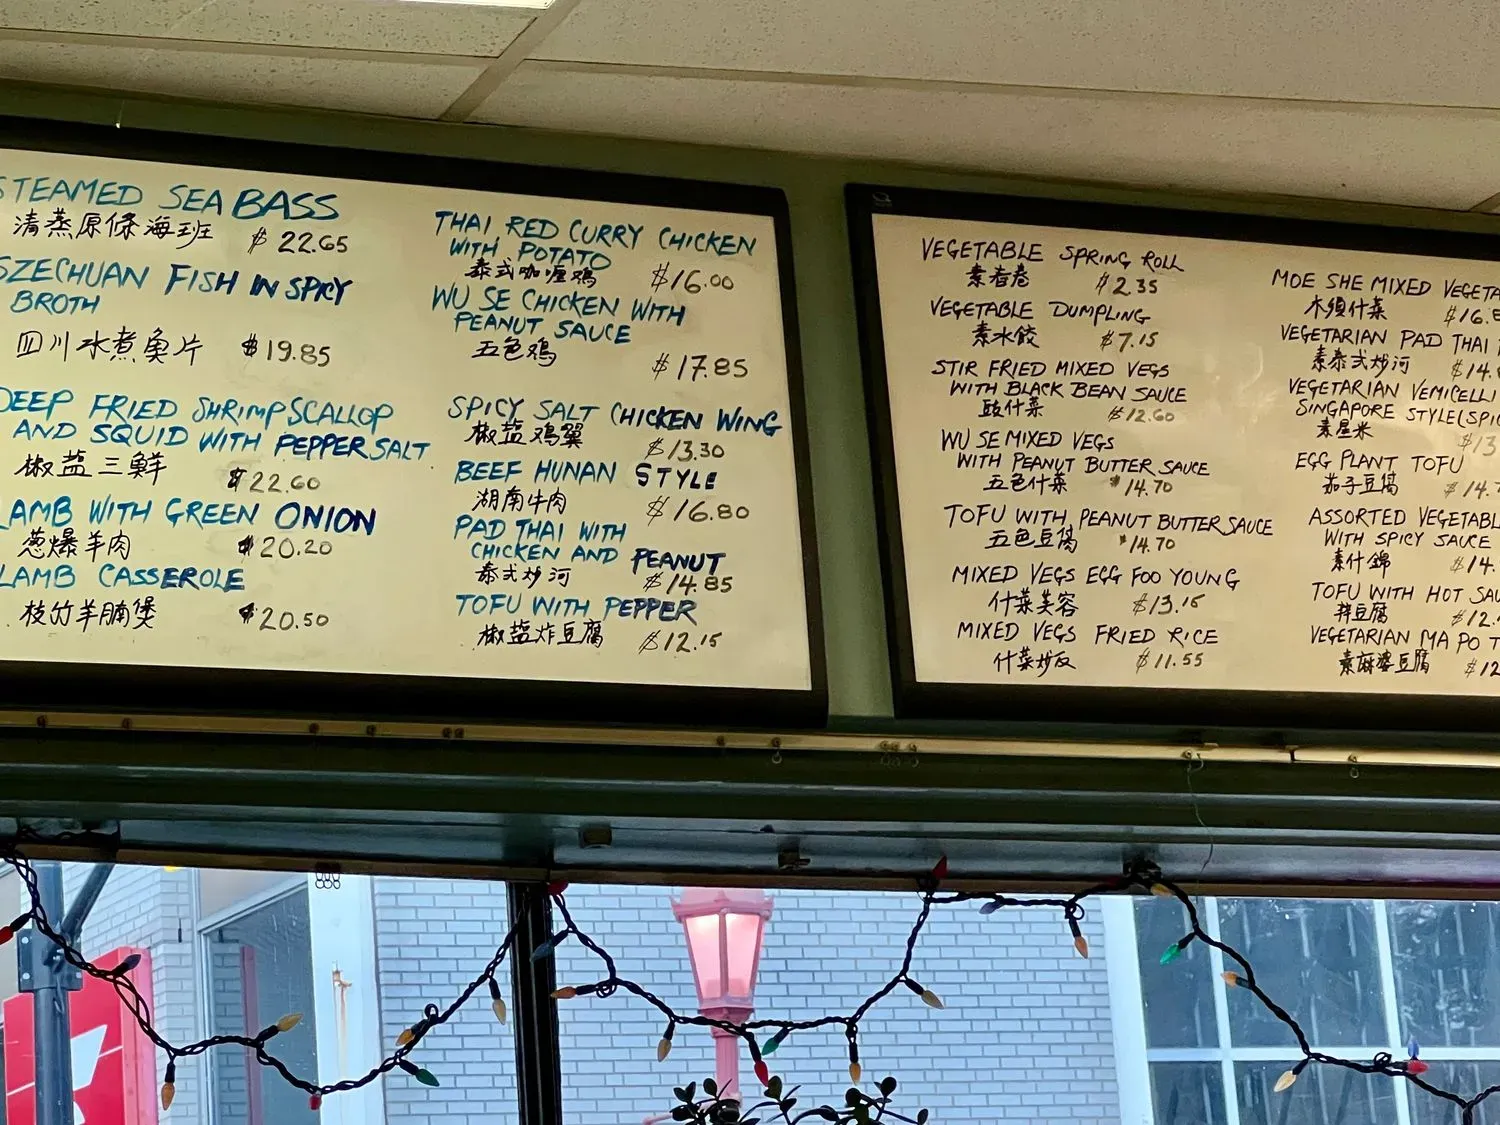 STEAMED SEA BASS
清蒸原條海班 $22.65
SZECHUAN FISH IN SPICY
BROTH
四川水煮魚片 $19.85
DEEP FRIED SHRIMP SCALLOP
AND SQUID WITH PEPPER SALT
椒盐三鲜 $22.60
LAMB WITH GREEN ONION
葱爆羊肉 $20.20
LAMB CASSEROLE
枝竹羊腩煲 $20.50
THAI RED CURRY CHICKEN
WITH POTATO
泰式咖喱鸡 $16.00
WU SE CHICKEN WITH
PEANUT SAUCE
五色鸡 $17.85
SPICY SALT CHICKEN WING
椒盐鸡翼 $13.30
BEEF HUNAN STYLE
湖南牛肉 $16.80
PAD THAI WITH
CHICKEN AND PEANUT
泰式炒河 $14.85
TOFU WITH PEPPER
椒盐炸豆腐 $12.15
VEGETABLE SPRING ROLL
素春卷 $2.35
VEGETABLE DUMPLING
素水餃 $7.15
STIR FRIED MIXED VEGS
WITH BLACK BEAN SAUCE
豉什菜 $12.60
WU SE MIXED VEGS
WITH PEANUT BUTTER SAUCE
五色什菜 $14.70
TOFU WITH PEANUT BUTTER SAUCE
五色豆腐 $14.70
MIXED VEGS EGG FOO YOUNG
什菜芙容 $13.15
MIXED VEGS FRIED RICE
什菜炒反 $11.55
MOE SHE MIXED VEGETA
木須什菜 $16.
VEGETARIAN PAD THAI
素泰式炒河 $14.
VEGETARIAN VEMICELLI
SINGAPORE STYLE (SPIC
素星米 $13
EGG PLANT TOFU
茄子豆腐 $14.
ASSORTED VEGETABL
WITH SPICY SAUCE
素什錦 $14.
TOFU WITH HOT SAU
拌豆腐 $12.
VEGETARIAN MA PO T
素麻婆豆腐 $12